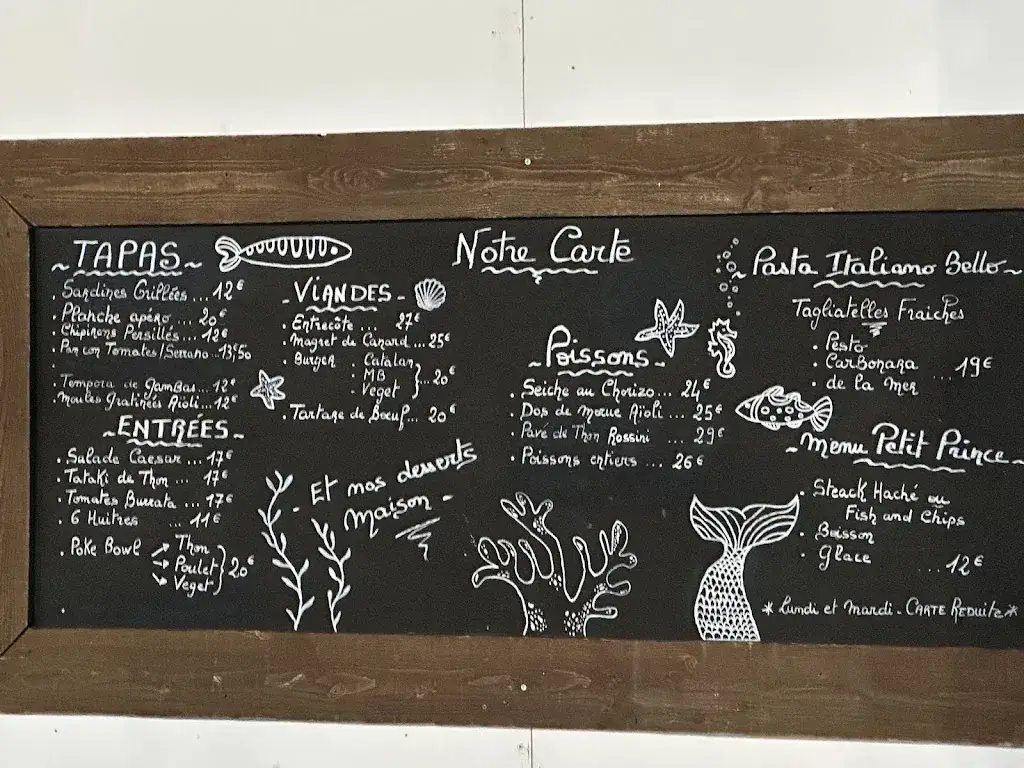 Notre Carte
~TAPAS~
. Sardines Grillées ... 12€
. Planche apéro ... 20€
. Chipirons Persillés ... 12€
. Pan con Tomates/Serrano ... 13,50
.
. Tempora de Gambas ... 12€
. Moules Gratinées Aïoli ... 12€
~ENTREES~
. Salade Caesar ... 17€
. Tataki de Thon ... 17€
. Tomates Burrata ... 17€
. 6 Huitres ... 11€
. Poke Bowl Thon
Poulet 20€
Veget
- VIANDES -
. Entrecôte ... 27€
. Magret de Canard ... 25€
. Burger : Catalan
: MB ... 20€
: Veget
. Tartare de Bœuf ... 20€
- Et nos desserts
Maison -
~Poissons~
. Seiche au Chorizo ... 24€
. Dos de Morue Aïoli ... 25€
. Pavé de Thon Rossini ... 29€
. Poissons entiers ... 26€
~Pasta Italiano Bello~
Tagliatelles Fraiches
. Pesto
. Carbonara ... 19€
. de la Mer
~Menu Petit Prince~
. Steack Haché ou
Fish and Chips
. Boisson
. Glace ... 12€
* Lundi et Mardi - CARTE REDUITE *